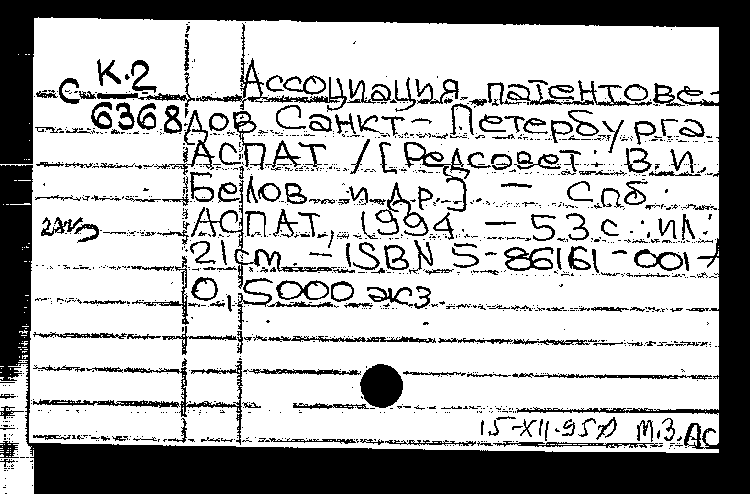 С К.2
6368
Ассоциация патентове-
дов Санкт-Петербурга
АСПАТ / [Редсовет: В.И.
Белов и др.] - Спб.:
АСПАТ, 1994. - 53 с.: ил.;
21 cm. - ISBN 5-86161-001-
0, 5000 экз.
15-XII-95 М.З.АС